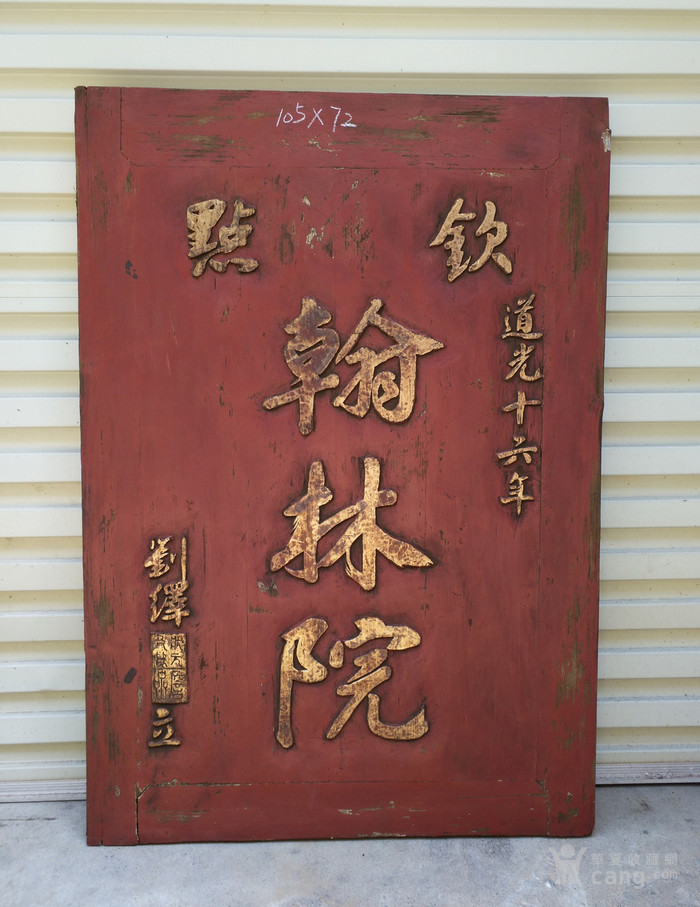 105×72
欽點
道光十六年
翰林院
劉繹
立
華夏收藏網
cang.com